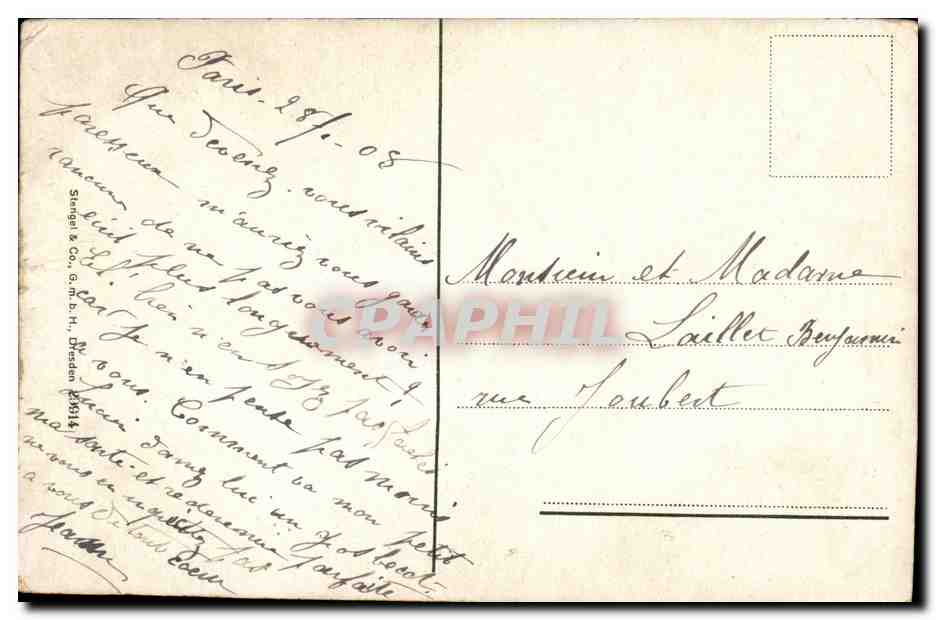 Paris - 28/1 - 08
Que devenez-vous vilains
paresseux m'auriez vous gardé
rancune de ne pas vous avoir
écrit plus longuement
Eh bien n'en pas
car je n'en pense pas moins
à vous. Comment va mon petit
Lucien lui un gros becot.
ma santé est redevenue parfaite
ne vous en inquiétez pas
à vous de tout coeur
Jeanne
Stengel & Co., G.m.b.H., Dresden
CPAPHIL
Monsieur et Madame
Laillet Benjamin
rue Joubert